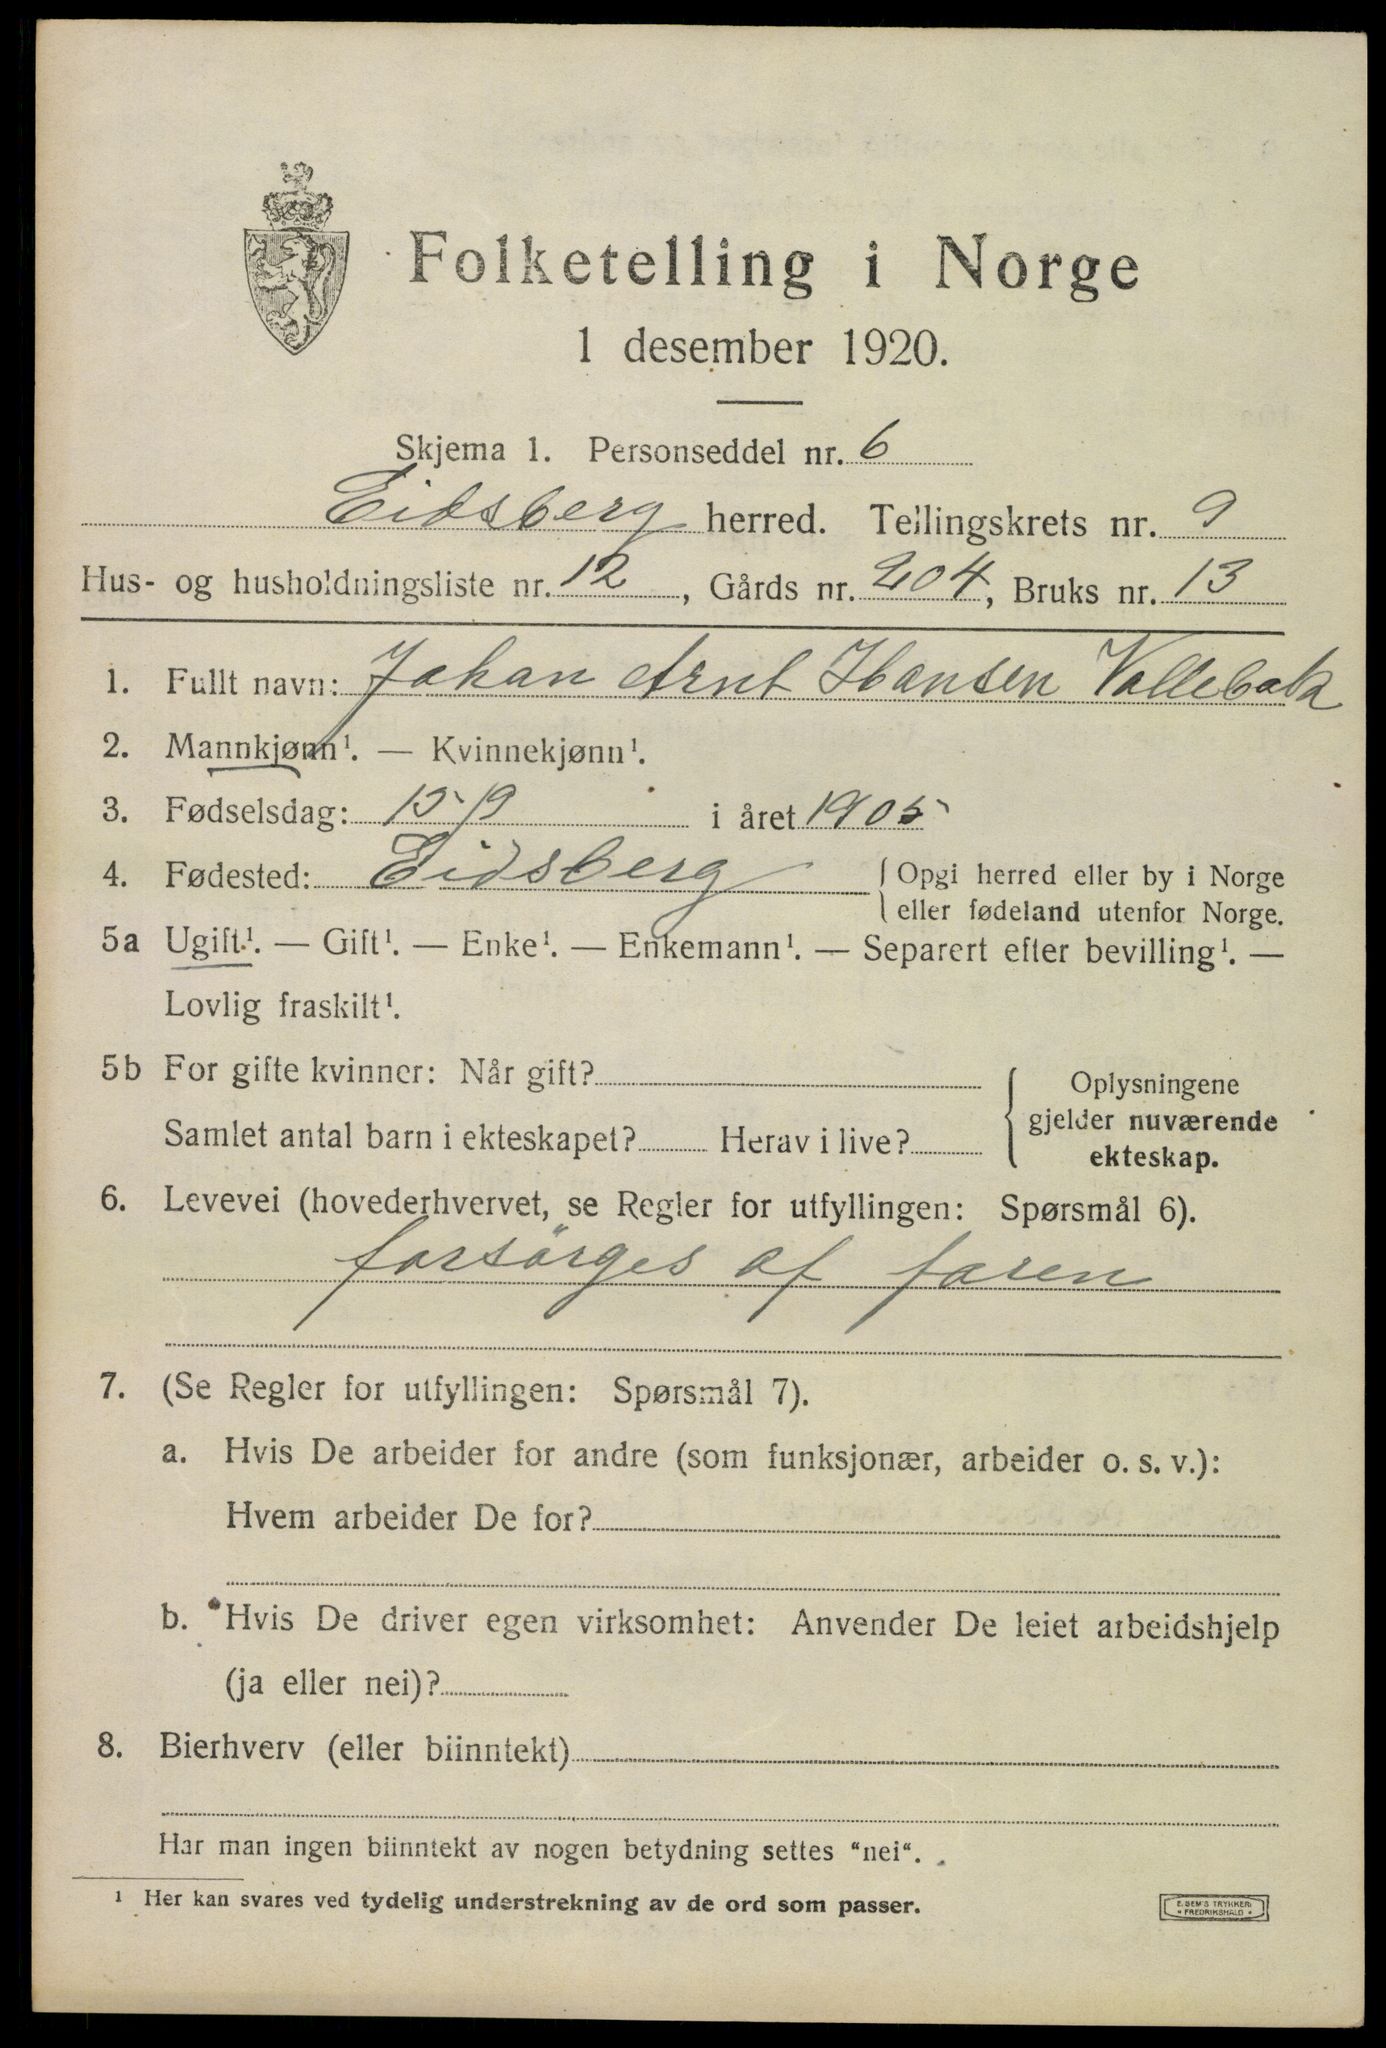 Folketelling i Norge
1 desember 1920.
Skjema 1. Personseddel nr. 6
Eidsberg herred. Tellingskrets nr. 9
Hus- og husholdningsliste nr. 12, Gårds nr. 204, Bruks nr. 13
1. Fullt navn: Johan Arnt Hansen Vollebak
2. Mannkjønn¹. — Kvinnekjønn¹.
3. Fødselsdag: 15/9 i året 1905
4. Fødested: Eidsberg { Opgi herred eller by i Norge
eller fødeland utenfor Norge.
5a Ugift¹. — Gift¹. — Enke¹. — Enkemann¹. — Separert efter bevilling¹. —
Lovlig fraskilt¹.
5b For gifte kvinner: Når gift? { Oplysningene
gjelder nuværende
Samlet antal barn i ekteskapet? Herav i live?
ekteskap.
6. Levevei (hovederhvervet, se Regler for utfyllingen: Spørsmål 6).
forsörges af faren
7. (Se Regler for utfyllingen: Spørsmål 7).
a. Hvis De arbeider for andre (som funksjonær, arbeider o. s. v.):
Hvem arbeider De for?
b. Hvis De driver egen virksomhet: Anvender De leiet arbeidshjelp
(ja eller nei)?
8. Bierhverv (eller biinntekt)
Har man ingen biinntekt av nogen betydning settes "nei".
¹ Her kan svares ved tydelig understrekning av de ord som passer.
E. SEM'S TRYKKERI
* FREDRIKSHALD *